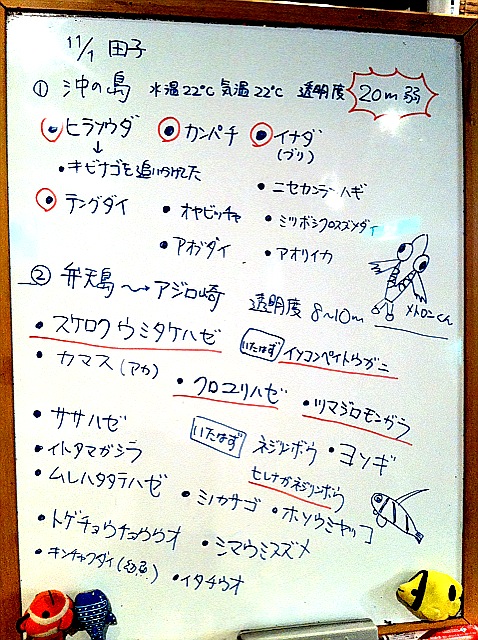 11/1 田子
① 沖の島 水温22℃ 気温22℃ 透明度 20m弱
ヒラソウダ カンパチ イナダ
(ブリ)
↓
・キビナゴを追いかけてた
・ニセカンランハギ
テングダイ ・オヤビッチャ ・ミツボシクロスズメダイ
・アオダイ ・アオリイカ
② 弁天島 〜→ アジロ崎 透明度 8〜10m メトロニくん
・スケロクウミタケハゼ いたはず イソコンペイトウガニ
・カマス(アカ)
・クロユリハゼ ・ツマジロモンガラ
・ササハゼ いたはず ネジリンボウ ・ヨスジ
・イトタマガシラ ヒレナガネジリンボウ
・ムレハタタテハゼ ・ミノカサゴ ・ホソウミヤッコ
・トゲチョウチョウウオ ・シマウミスズメ
・キンチャクダイ(幼魚) ・イタチウオ